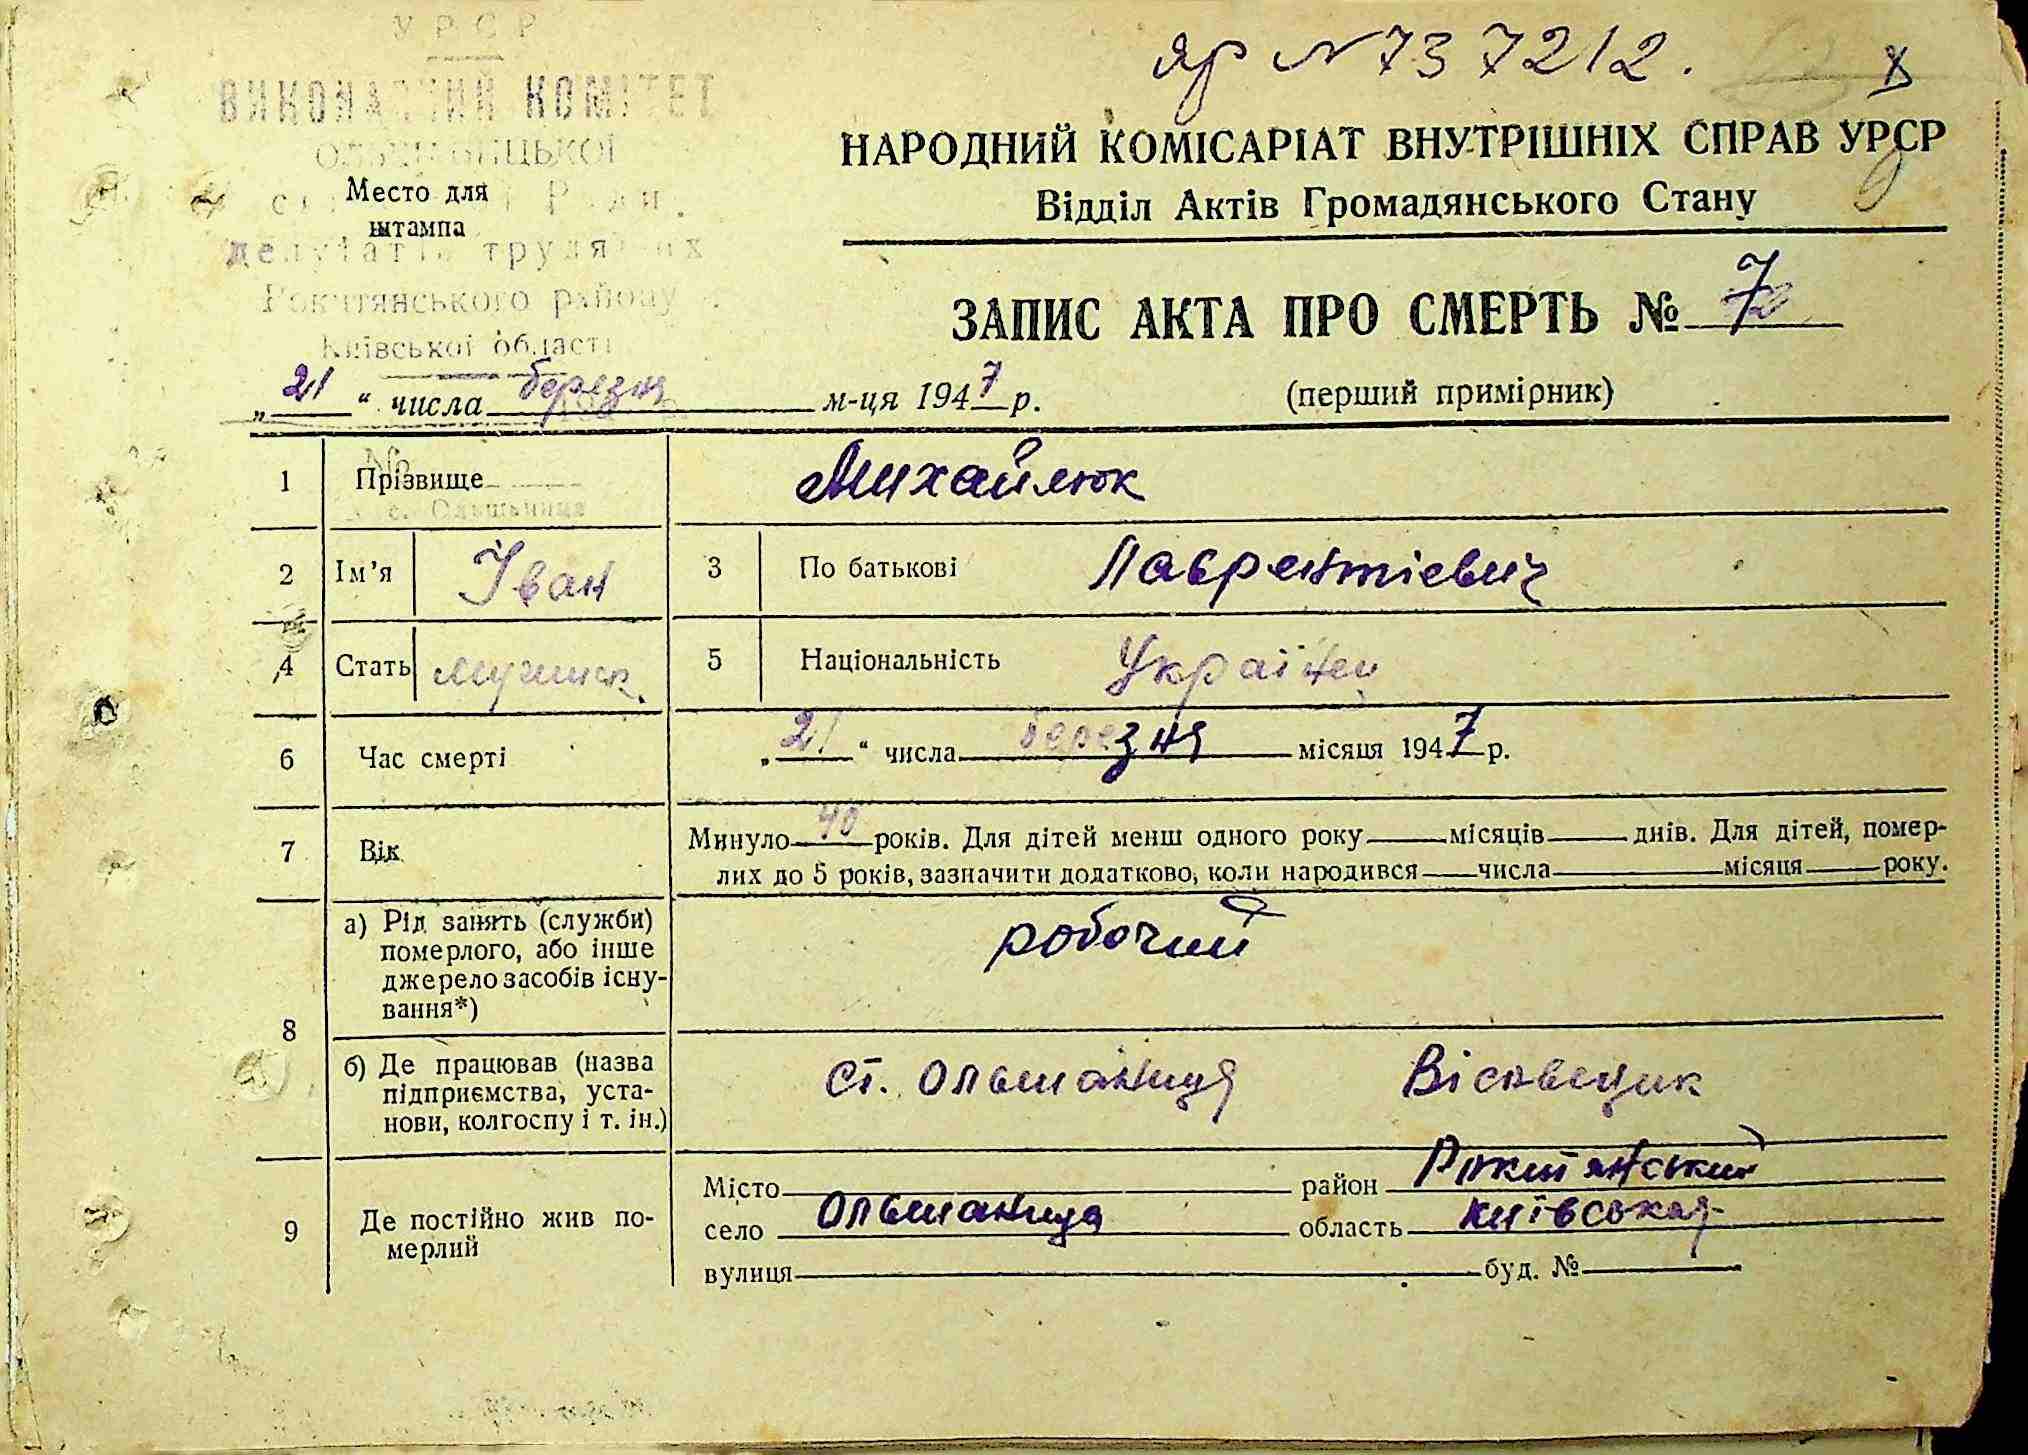 УРСР
ВИКОНАВЧИЙ КОМІТЕТ
ОЛЬШАНИЦЬКОЇ
Ради
депутатів трудящих
Рокитянського району
Київської області
Место для
штампа
яр N 737212.
НАРОДНИЙ КОМІСАРІАТ ВНУТРІШНІХ СПРАВ УРСР
Відділ Актів Громадянського Стану
ЗАПИС АКТА ПРО СМЕРТЬ № 7
„21“ числа березня м-ця 1947 р. (перший примірник)
№
с. Ольшаниця
1 Прізвище Михайлюк
2 Ім'я Іван 3 По батькові Лаврентієвич
4 Стать 5 Національність Українец
6 Час смерті „21“ числа березня місяця 1947 р.
7 Вік Минуло 40 років. Для дітей менш одного року — місяців — днів. Для дітей, помер-
лих до 5 років, зазначити додатково, коли народився — числа — місяця — року.
8 а) Рід занять (служби)
померлого, або інше
джерело засобів існу-
вання*)
робочий
б) Де працював (назва
підприємства, уста-
нови, колгоспу і т. ін.)
ст. Ольшаниця
9 Де постійно жив по-
мерлий
Місто район Рокитянський
село Ольшаница область київськая
вулиця буд. №